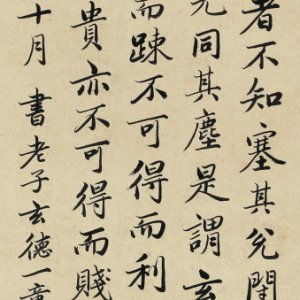 者不知塞其兌閉
光同其塵是謂玄
而踈不可得而利
貴亦不可得而賤
十月 書老子玄德一章